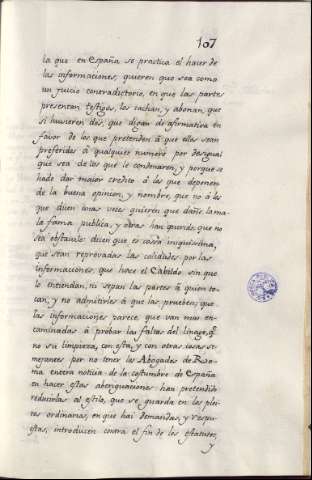 107
la que en España se practica el hacer de
las informaciones, quieren que sea como
un juicio contradictorio, en que las partes
presentan testigos, los tachan, y abonan, que
si huvieren dos, que digan de afirmativa en
favor de los que pretenden â que ellos sean
preferidos â qualquier numero por desigual
que sea de los que le condenaren, y porque se
ha de dar maior credito â los que deponen
de la buena opinion, y nombre, que no â los
que dicen unas veces quieren que dañe la ma-
la fama publica, y otras han querido que no
sea obstaculo: dicen que es cossa iniquissima,
que sean reprovadas las calidades por las
informaciones, que hace el Cabildo sin que
lo entiendan, ni sepan las partes â quien to-
can, y no admitirles â que las prueben; que
las informaciones parece que van mas en-
caminadas â probar las faltas del linage, q.e
no su limpieza, con esta, y con otras cosas se-
mejantes por no tener los Abogados de Ro-
ma entera noticia de la costumbre de España
en hacer estas aberiguaciones han pretendido
reducirlas al estilo, que se guarda en los plei-
tos ordinarios, en que hai demandas, y respu-
estas, introducen contra el fin de los estatutos,
y